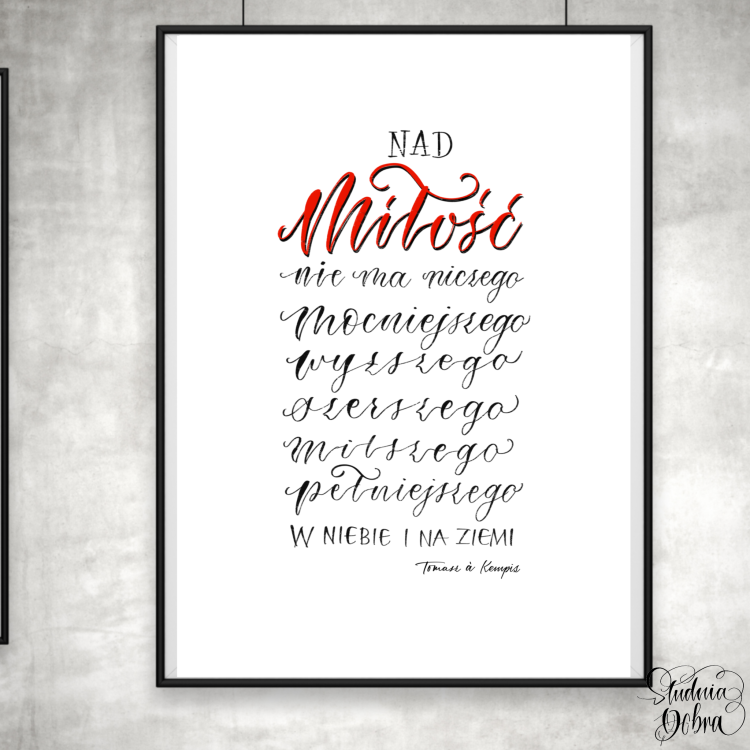 NAD
Miłość
nie ma niczego
mocniejszego
wyższego
szerszego
milszego
pełniejszego
W NIEBIE I NA ZIEMI
Tomasz à Kempis
Studnia
Dobra